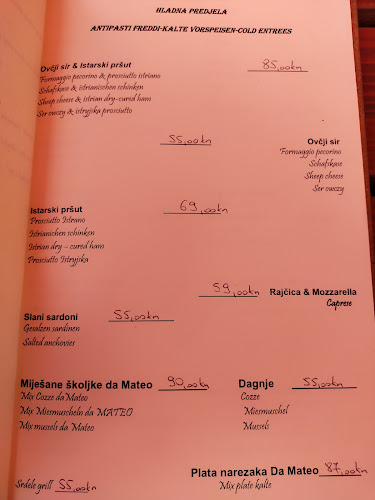 HLADNA PREDJELA
ANTIPASTI FREDDI-KALTE VORSPEISEN-COLD ENTREES
Ovčji sir & Istarski pršut 85,00kn
Formaggio pecorino & prosciutto istriano
Schafskase & istrianischen schinken
Sheep cheese & istrian dry-cured ham
Ser owczy & istryjska prosciutto
55,00kn Ovčji sir
Formaggio pecorino
Schafskase
Sheep cheese
Ser owczy
Istarski pršut 69,00kn
Prosciutto Istrano
Istrianichen schinken
Istrian dry – cured ham
Prosciutto Istryjska
59,00kn Rajčica & Mozzarella
Caprese
Slani sardoni 55,00kn
Gesalzen sardinen
Salted anchovies
Miješane školjke da Mateo 90,00kn
Mix Cozze da Mateo
Mix Miesmuscheln da MATEO
Mix mussels da Mateo
Dagnje 55,00kn
Cozze
Miesmuschel
Mussels
Plata narezaka Da Mateo 87,00kn
Mix plate kalte
Srdele grill 55,00kn